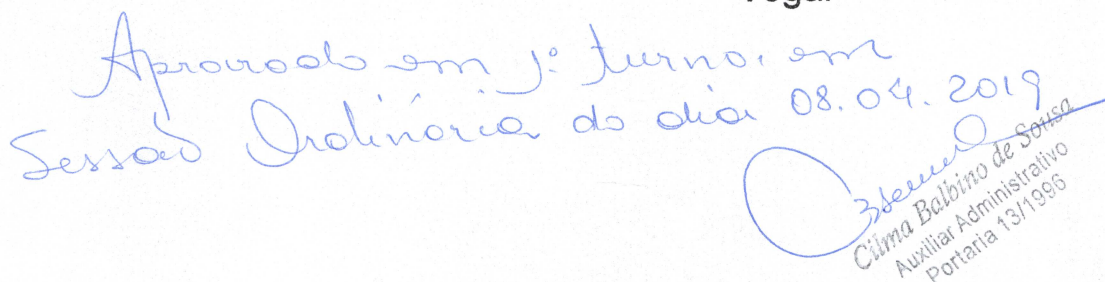 Aprovado em 1º turno, em
Sessão Ordinária do dia 08.04.2019
Cilma Balbino de Sousa
Auxiliar Administrativo
Portaria 13/1996